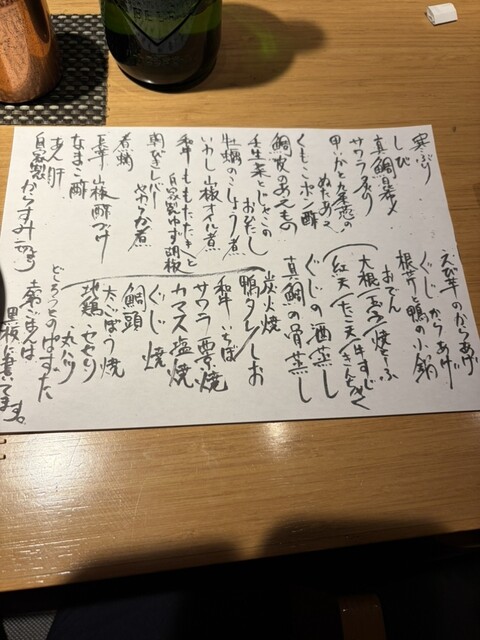 寒ぶり
しび
真鯛昆布〆
サワラあぶり
甲いかと九条葱の
ぬたあえ
くもこポン酢
鯛皮のあえもの
壬生菜とじゃこの
おひたし
牡蠣のこしょう煮
いわし山椒オイル煮
和牛ももたたきと
自家製ゆず胡椒
朝びきレバー
さやか煮
煮蛸
長芋山椒酢づけ
なまこ酢
あん肝
自家製からすみ
えび芋のからあげ
ぐじからあげ
根芹と鴨の小鍋
おでん
大根 玉子 焼とうふ
紅天 たこ天 牛すじ
ぐじの酒蒸し
真鯛の骨蒸し
炭火焼
鴨タレ/しお
和牛いちぼ
サワラ西京焼
カマス塩焼
ぐじ焼
鯛頭
太ごぼう焼
地鶏・セセリ
丸ハツ
とろろとのりのぱすた
土鍋ごはんは
黒板に書いてます。